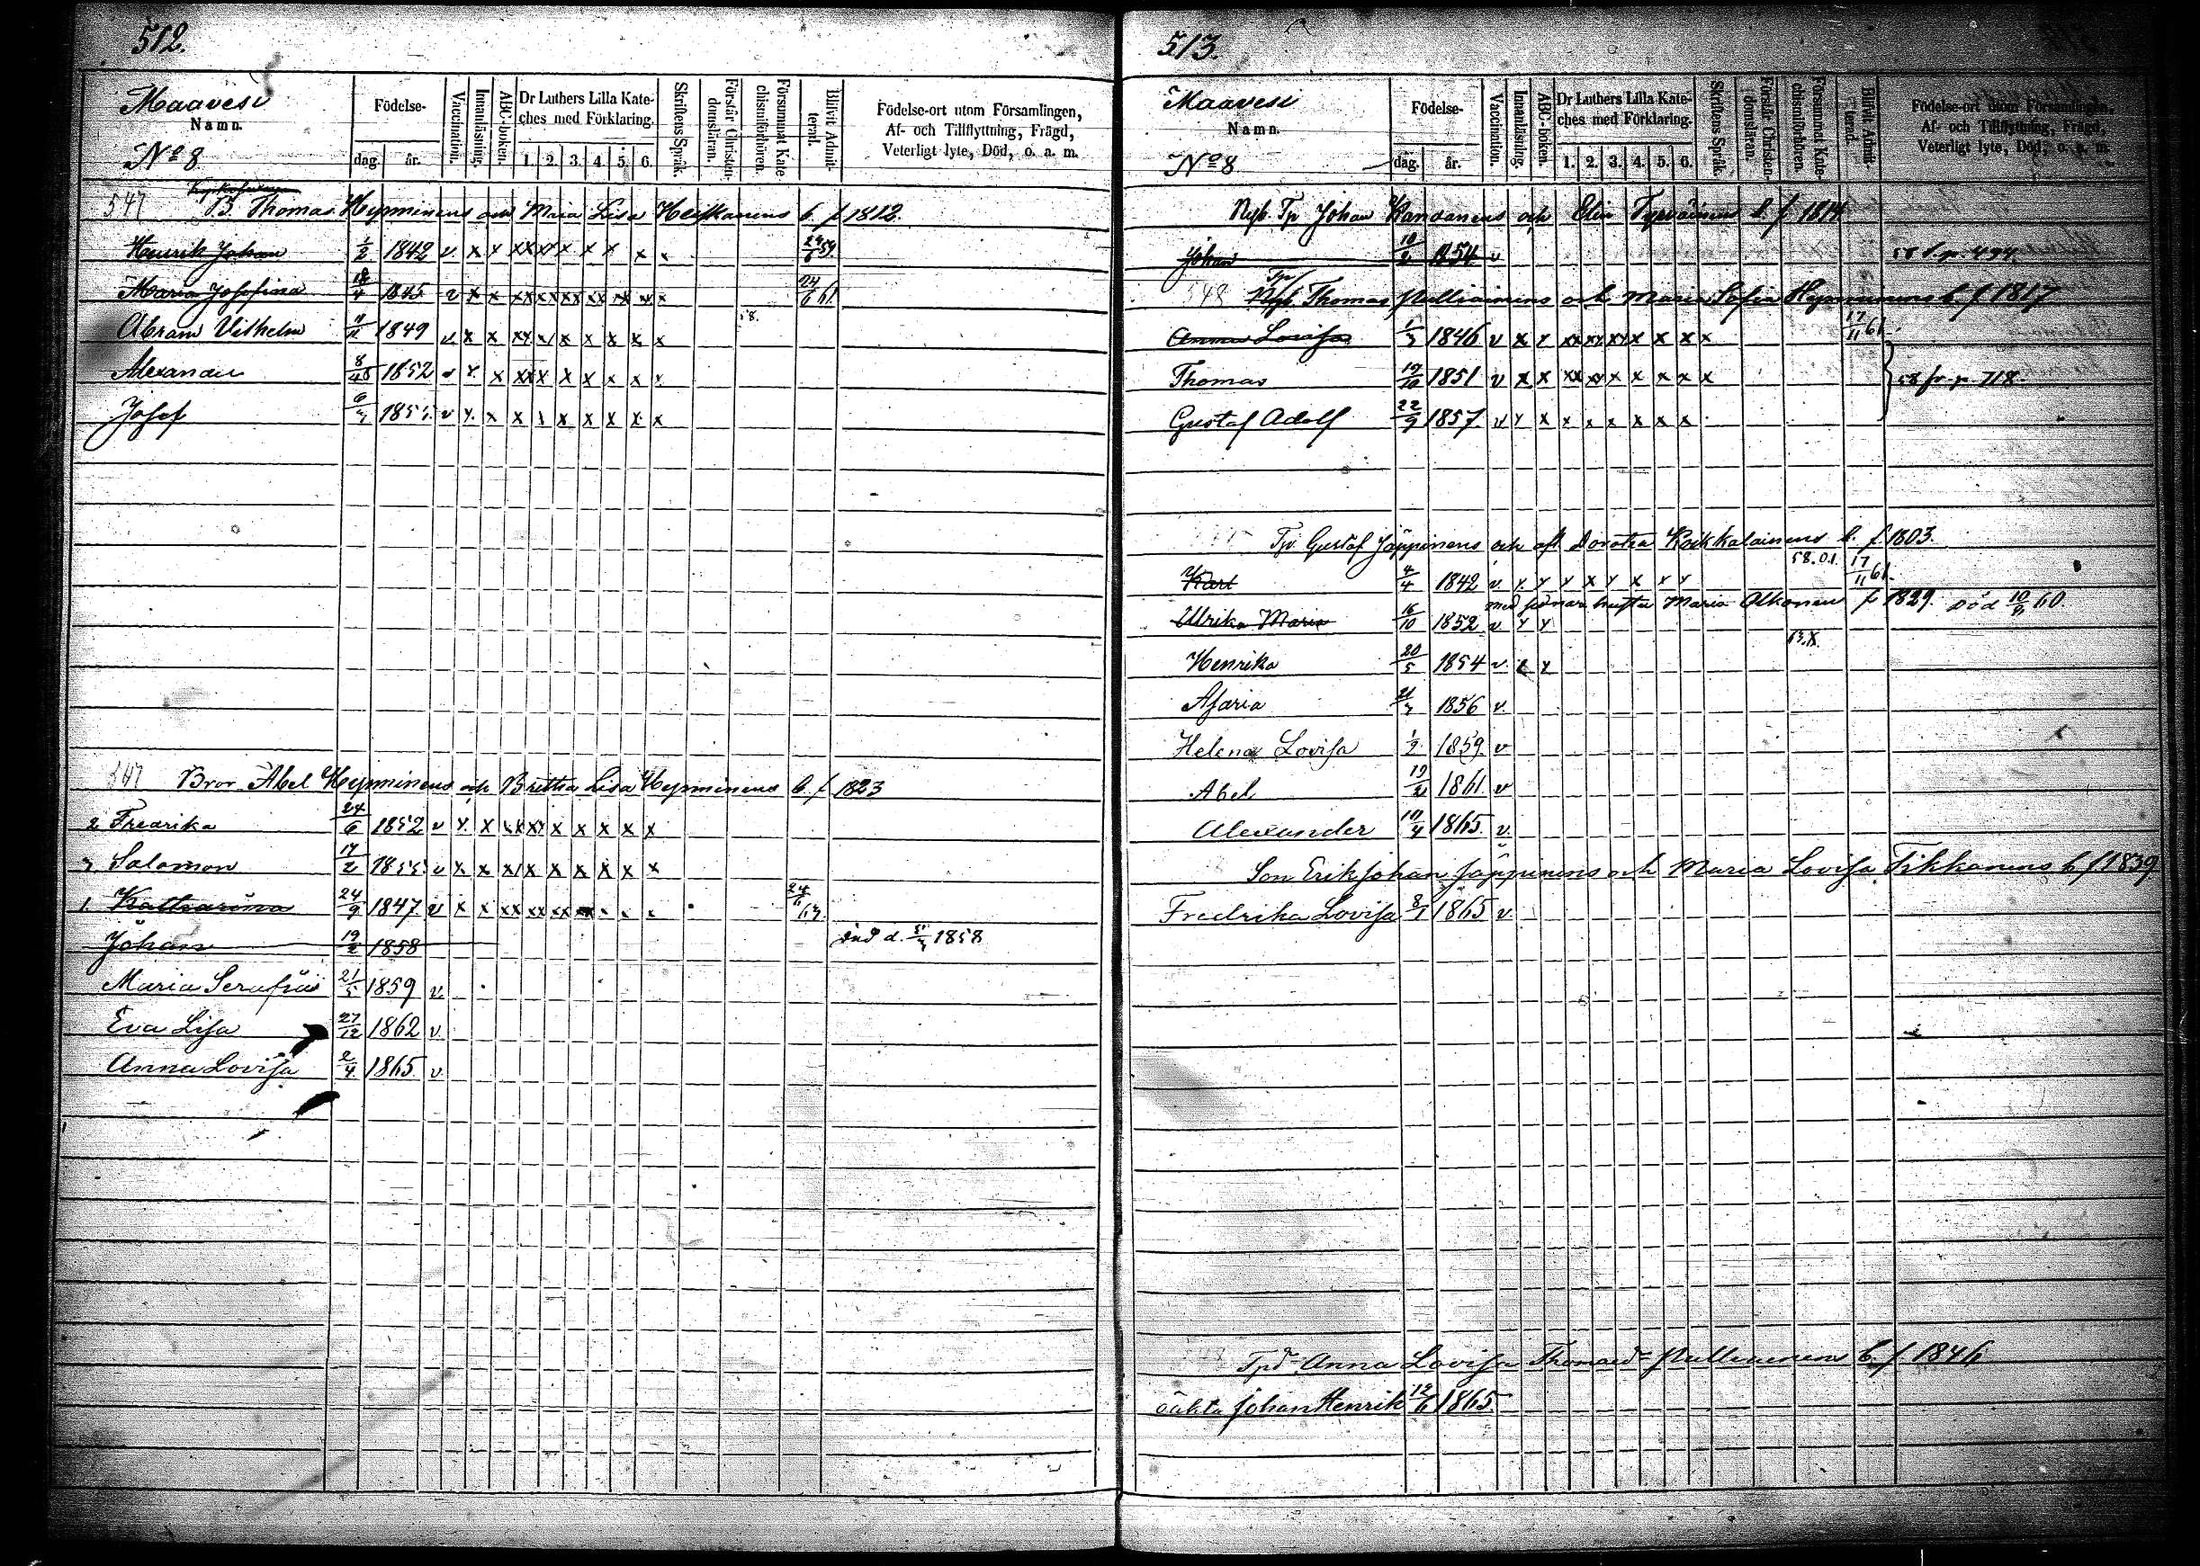 512.
Maavesi
Namn.
No 8
Födelse-
dag. år.
Vaccination.
Innanläsning.
ABC-boken.
Dr Luthers Lilla Kate-
ches med Förklaring.
1. 2. 3. 4. 5. 6.
Skriftens Språk.
Förstår Christen-
domsläran.
Försummat Kate-
chismiförhören.
Blifvit Admit-
terad.
Födelse-ort utom Församlingen,
Af- och Tillflyttning, Frägd,
Veterligt lyte, Död, o. a. m.
547 B. Thomas Hyvninens och Maria Lisa Heiskanens b. f 1812.
Henrik Johan 1/2 1842 v x x xx xx x x x x x 24/6 59.
Maria Josefina 18/4 1845 v x x xx xx xx xx xx xx x 24/6 61.
Abram Vilhelm 1849 v x x xx x x x x x x 58.
Alexander 8/4 1852 v x x xx x x x x x x
Josef 6/7 1855 v x x x x x x x x x
547 Bror Abel Hyvninens och Brettha Lisa Hyvninens b. f 1823
2 Fredrika 24/6 1852 v x x xx xx x x x x x
3 Salomon 17/2 1855 v x x x x x x x x x
1. Katharina 24/9 1847 v x x xx xx xx x x x x 24/6 63.
Johan 19/2 1858 död d. 1858
Maria Serafiia 21/5 1859 v.
Eva Lisa 27/12 1862 v.
Anna Lovisa 2/4 1865 v
513.
Maavesi
Namn.
No 8
Födelse-
dag. år.
Vaccination.
Innanläsning.
ABC-boken.
Dr Luthers Lilla Kate-
ches med Förklaring.
1. 2. 3. 4. 5. 6.
Skriftens Språk.
Förstår Christen-
domsläran.
Försummat Kate-
chismiförhören.
Blifvit Admit-
terad.
Födelse-ort utom Församlingen,
Af- och Tillflyttning, Frägd,
Veterligt lyte, Död, o. a. m.
Nyb. Tp Johan och Elin Tyrväinens b. f 1814.
Johan 10/2 1854 v 58 t. p. 494.
548 Tp Thomas Pulliainens och Maria Sofia Hyvninens b. f 1817
Anna Lovisa 1/3 1846 v x x xx xx xx x x x x 17/11 61.
Thomas 19/10 1851 v x x xx xx x x x x x 58 fr. p. 718.
Gustaf Adolf 22/9 1857 v x x x x x x x x
Tp. Gustaf Jäppinens och afl. Dorotea Koikkalainens b. f 1803.
Karl 4/4 1842 v x x x x x x x x 58.01. 17/11 61.
med sednare hustru Maria Olkonen f 1829. död 10/11 60.
Ulrika Maria 16/10 1852 v x x
63.X.
Henrika 20/5 1854 v. x x
Asaria 21/7 1856 v.
Helena Lovisa 1/2 1859 v
Abel 19/2 1861 v
Alexander 10/4 1865. v.
Son Erik Johan Jäppinens och Maria Lovisa Tikkanens b f 1839
Fredrika Lovisa 8/1 1865 v.
548 Tpd Anna Lovisa Thomasd Pulliainens b. f. 1846
oäkta Johan Henrik 12/6 1865